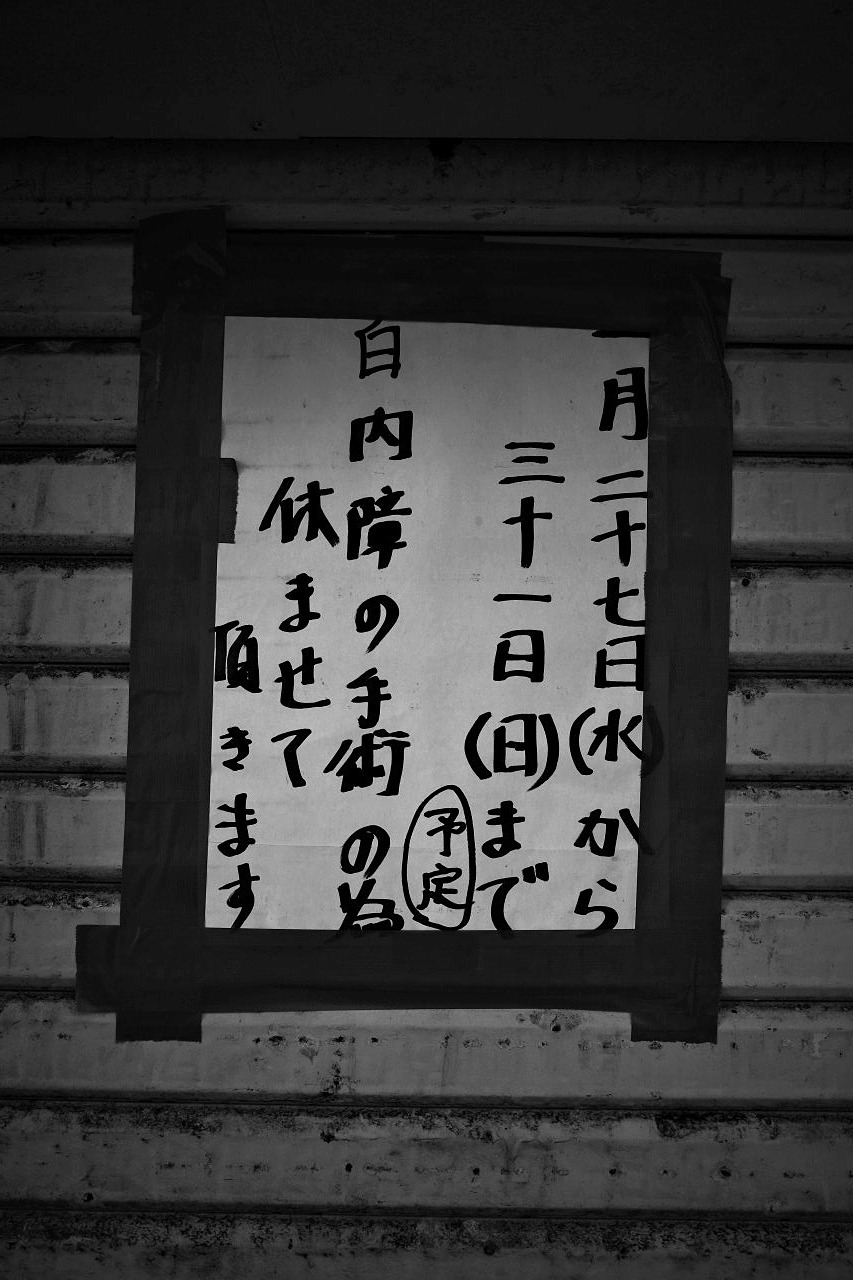 月二十七日(水)から
三十一日(日)まで
予定
白内障の手術の為
休ませて
頂きます